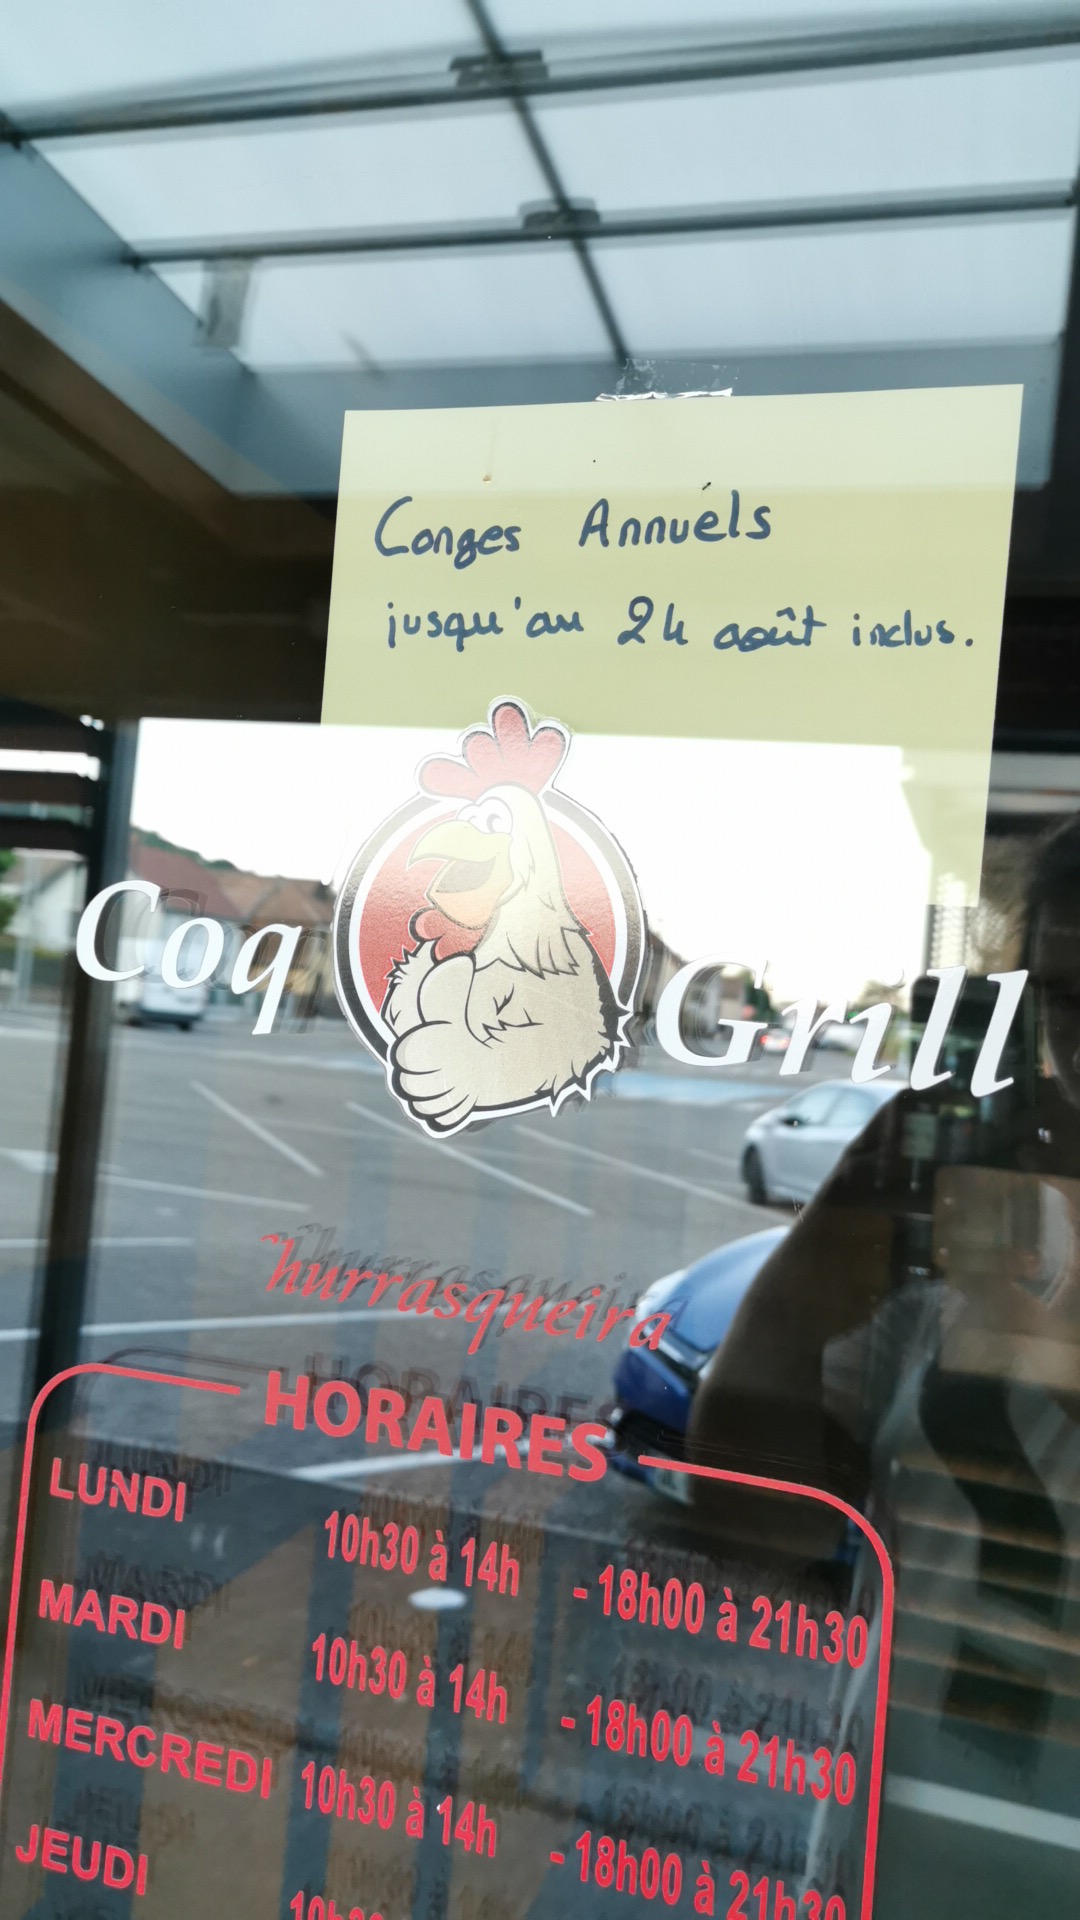 Conges Annuels
jusqu'au 24 août inclus.
Coq Grill
hurrasqueira
HORAIRES
LUNDI 10h30 à 14h - 18h00 à 21h30
MARDI 10h30 à 14h - 18h00 à 21h30
MERCREDI 10h30 à 14h - 18h00 à 21h30
JEUDI 10h30